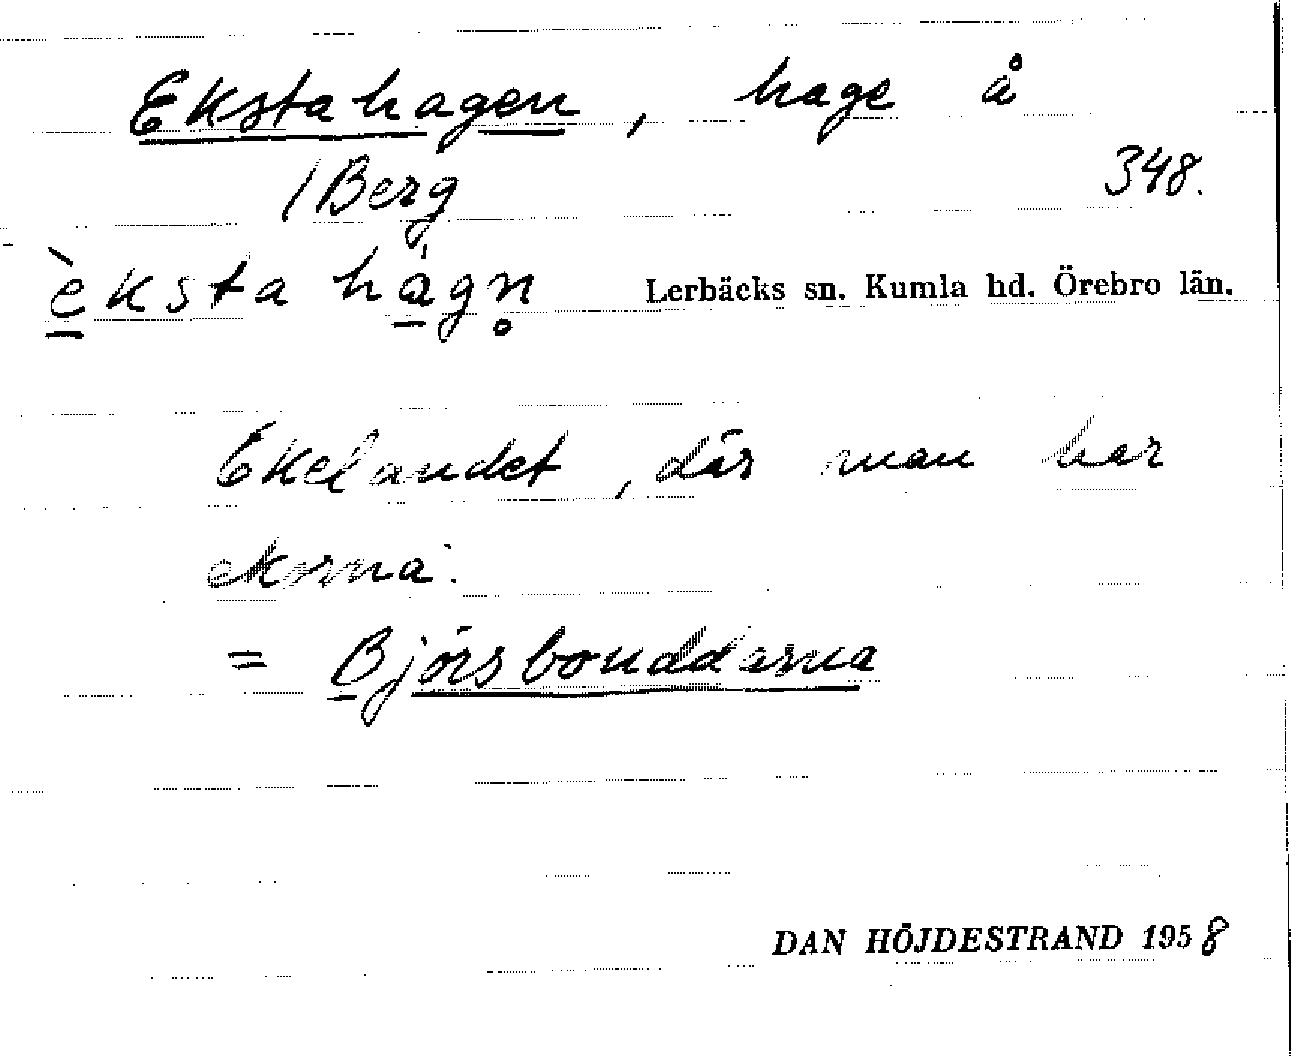 Ekstahagen, hage å
/Berg 348.
èksta hàgn̥ Lerbäcks sn. Kumla hd. Örebro län.
Ekelandet, där man har
ekorna.
= Björsbouddarna
DAN HÖJDESTRAND 1958